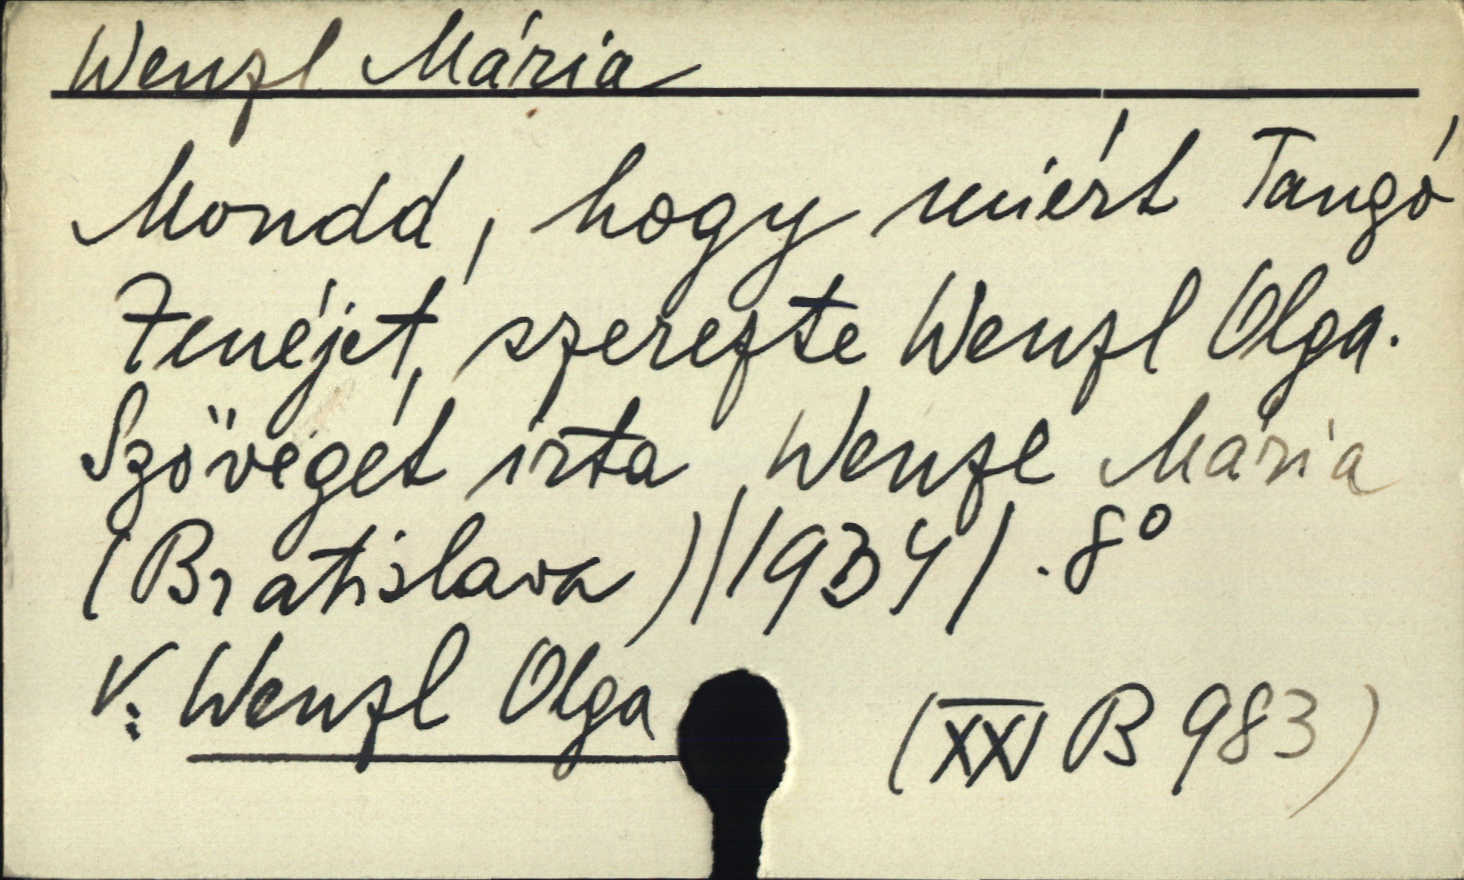 Wenzl Mária
Mondd, hogy miért Tangó
Zenéjét, szerezte Wenzl Olga.
Szövegét irta Wenzl Mária
(Bratislava) /1934/. 8°
V: Wenzl Olga
(XXV B 983)